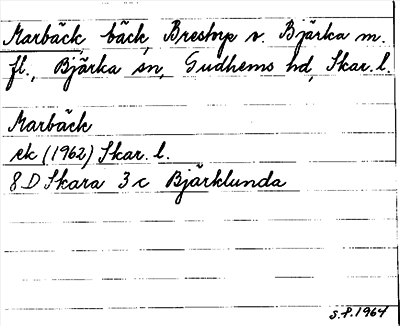 Marbäck, bäck, Brestorp v. Bjärka m.
fl., Bjärka sn, Gudhems hd, Skar. l.
Marbäck
ek (1962) Skar. l.
8 D Skara 3 c Bjärklunda
S.P. 1964